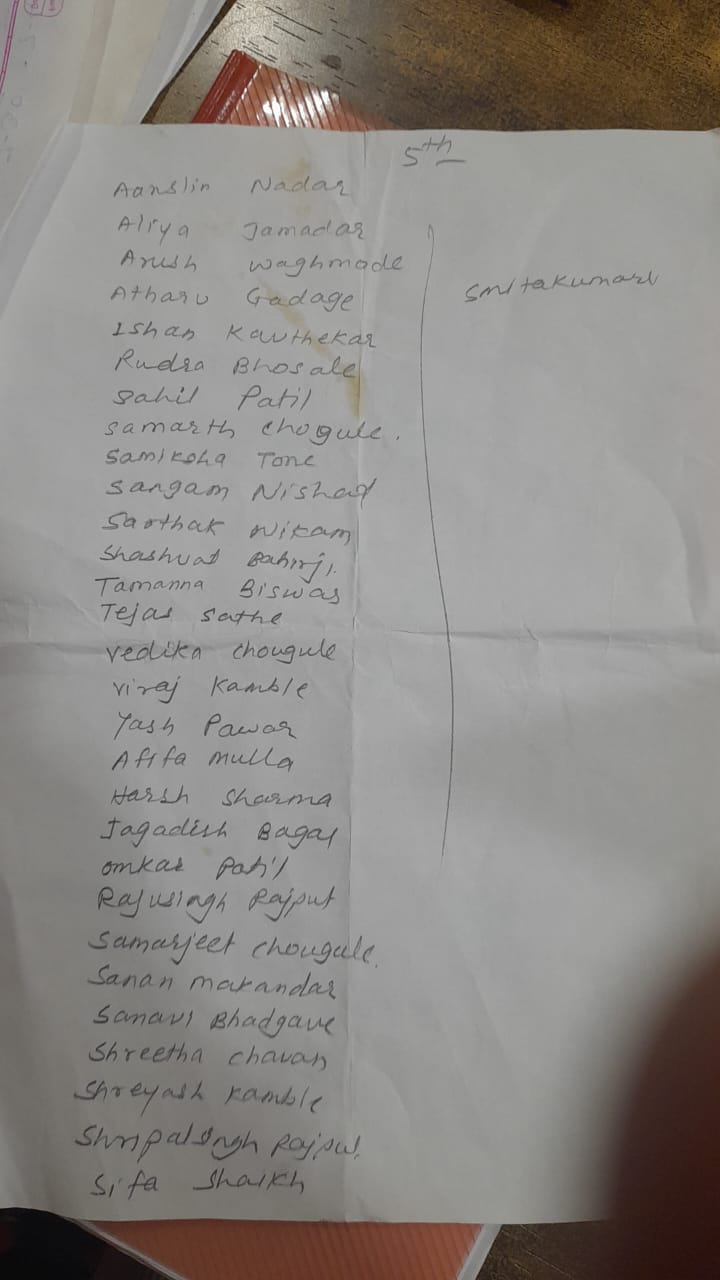 5th
Aanslin Nadar
Aliya Jamadar
Arush Waghmode
Atharv Gadage
Ishan Kavthekar
Rudra Bhosale
Sahil Patil
Samarth Chogule.
Samiksha Tone
Sangam Nishad
Sarthak Nikam
Shashvat Bahirji.
Tamanna Biswas
Tejas Sathe
Vedika Chougule
Viraj Kamble
Yash Pawar
Afifa Mulla
Harsh Sharma
Jagadish Bagal
Omkar Patil
Rajusingh Rajput
Samarjeet Chougule.
Sanan Makandar
Sanavi Bhadgave
Shreetha Chavan
Shreyash Kamble
Shripalsingh Rajput.
Sifa Shaikh
Smitakumari